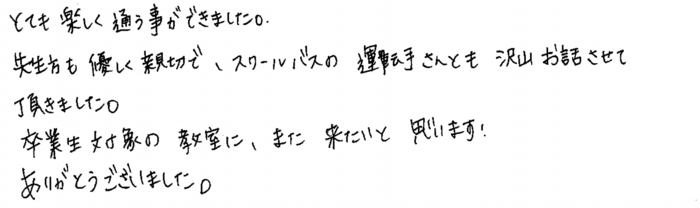 とても楽しく通う事ができました。
先生方も優しく親切で、スクールバスの運転手さんとも沢山お話させて
頂きました。
卒業生対象の教室に、また来たいと思います!
ありがとうございました。